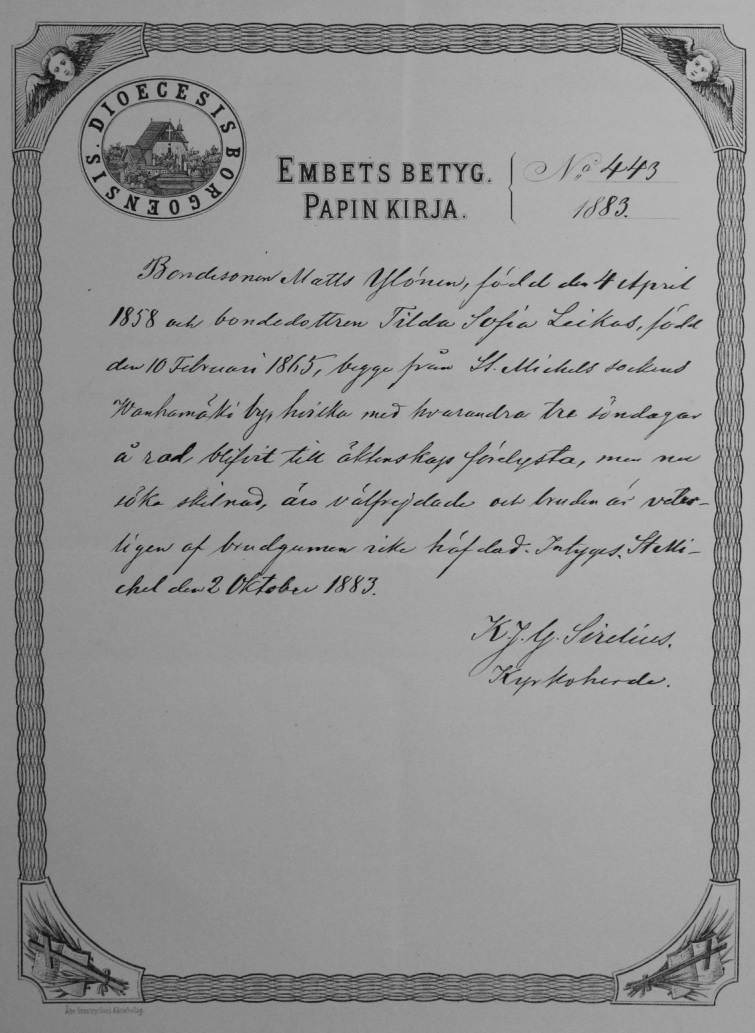 DIOECESIS BORGOENSIS.
EMBETS BETYG.
PAPIN KIRJA.
No 443
1883.
Bondesonen Matts Ylönen, född den 4 April
1858 och bondedottren Tilda Sofia Leikas, född
den 10 Februari 1865, begge från St. Michels sockens
Wanhamäki by, hvilka med hvarandra tre söndagar
å rad blifvit till äktenskap förelysta, men nu
söka skilnad, äro välfrejdade och bruden är veter-
ligen af brudgumen icke häfdad. Intygas. St Mi-
chel den 2 Oktober 1883.
K. J. G. Sirelius.
Kyrkoherde.